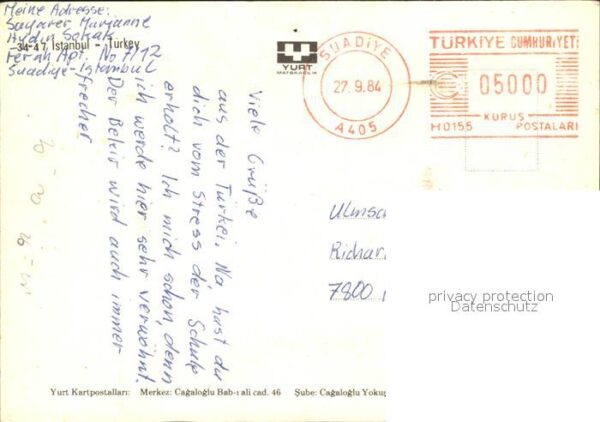 Meine Adresse:
Sayarer Marianne
Aydın Sokak
-34-47 İstanbul - Turkey
Ferah Apt. No 7/12
Suadiye-Istanbul
YURT
MATBAACILIK
SUADİYE
27.9.84
A405
TÜRKİYE CUMHURİYETİ
05000
KURUŞ
H0155 POSTALARI
Viele Grüße
aus der Türkei. Na hast du
dich vom Stress der Schule
erholt? Ich mich schon, denn
ich werde hier sehr verwöhnt.
Der Bekir wird auch immer
frecher
Ulmsc
Richar
7800
privacy protection
Datenschutz
Yurt Kartpostalları: Merkez: Cağaloğlu Bab-ı ali cad. 46 Şube: Cağaloğlu Yokuş